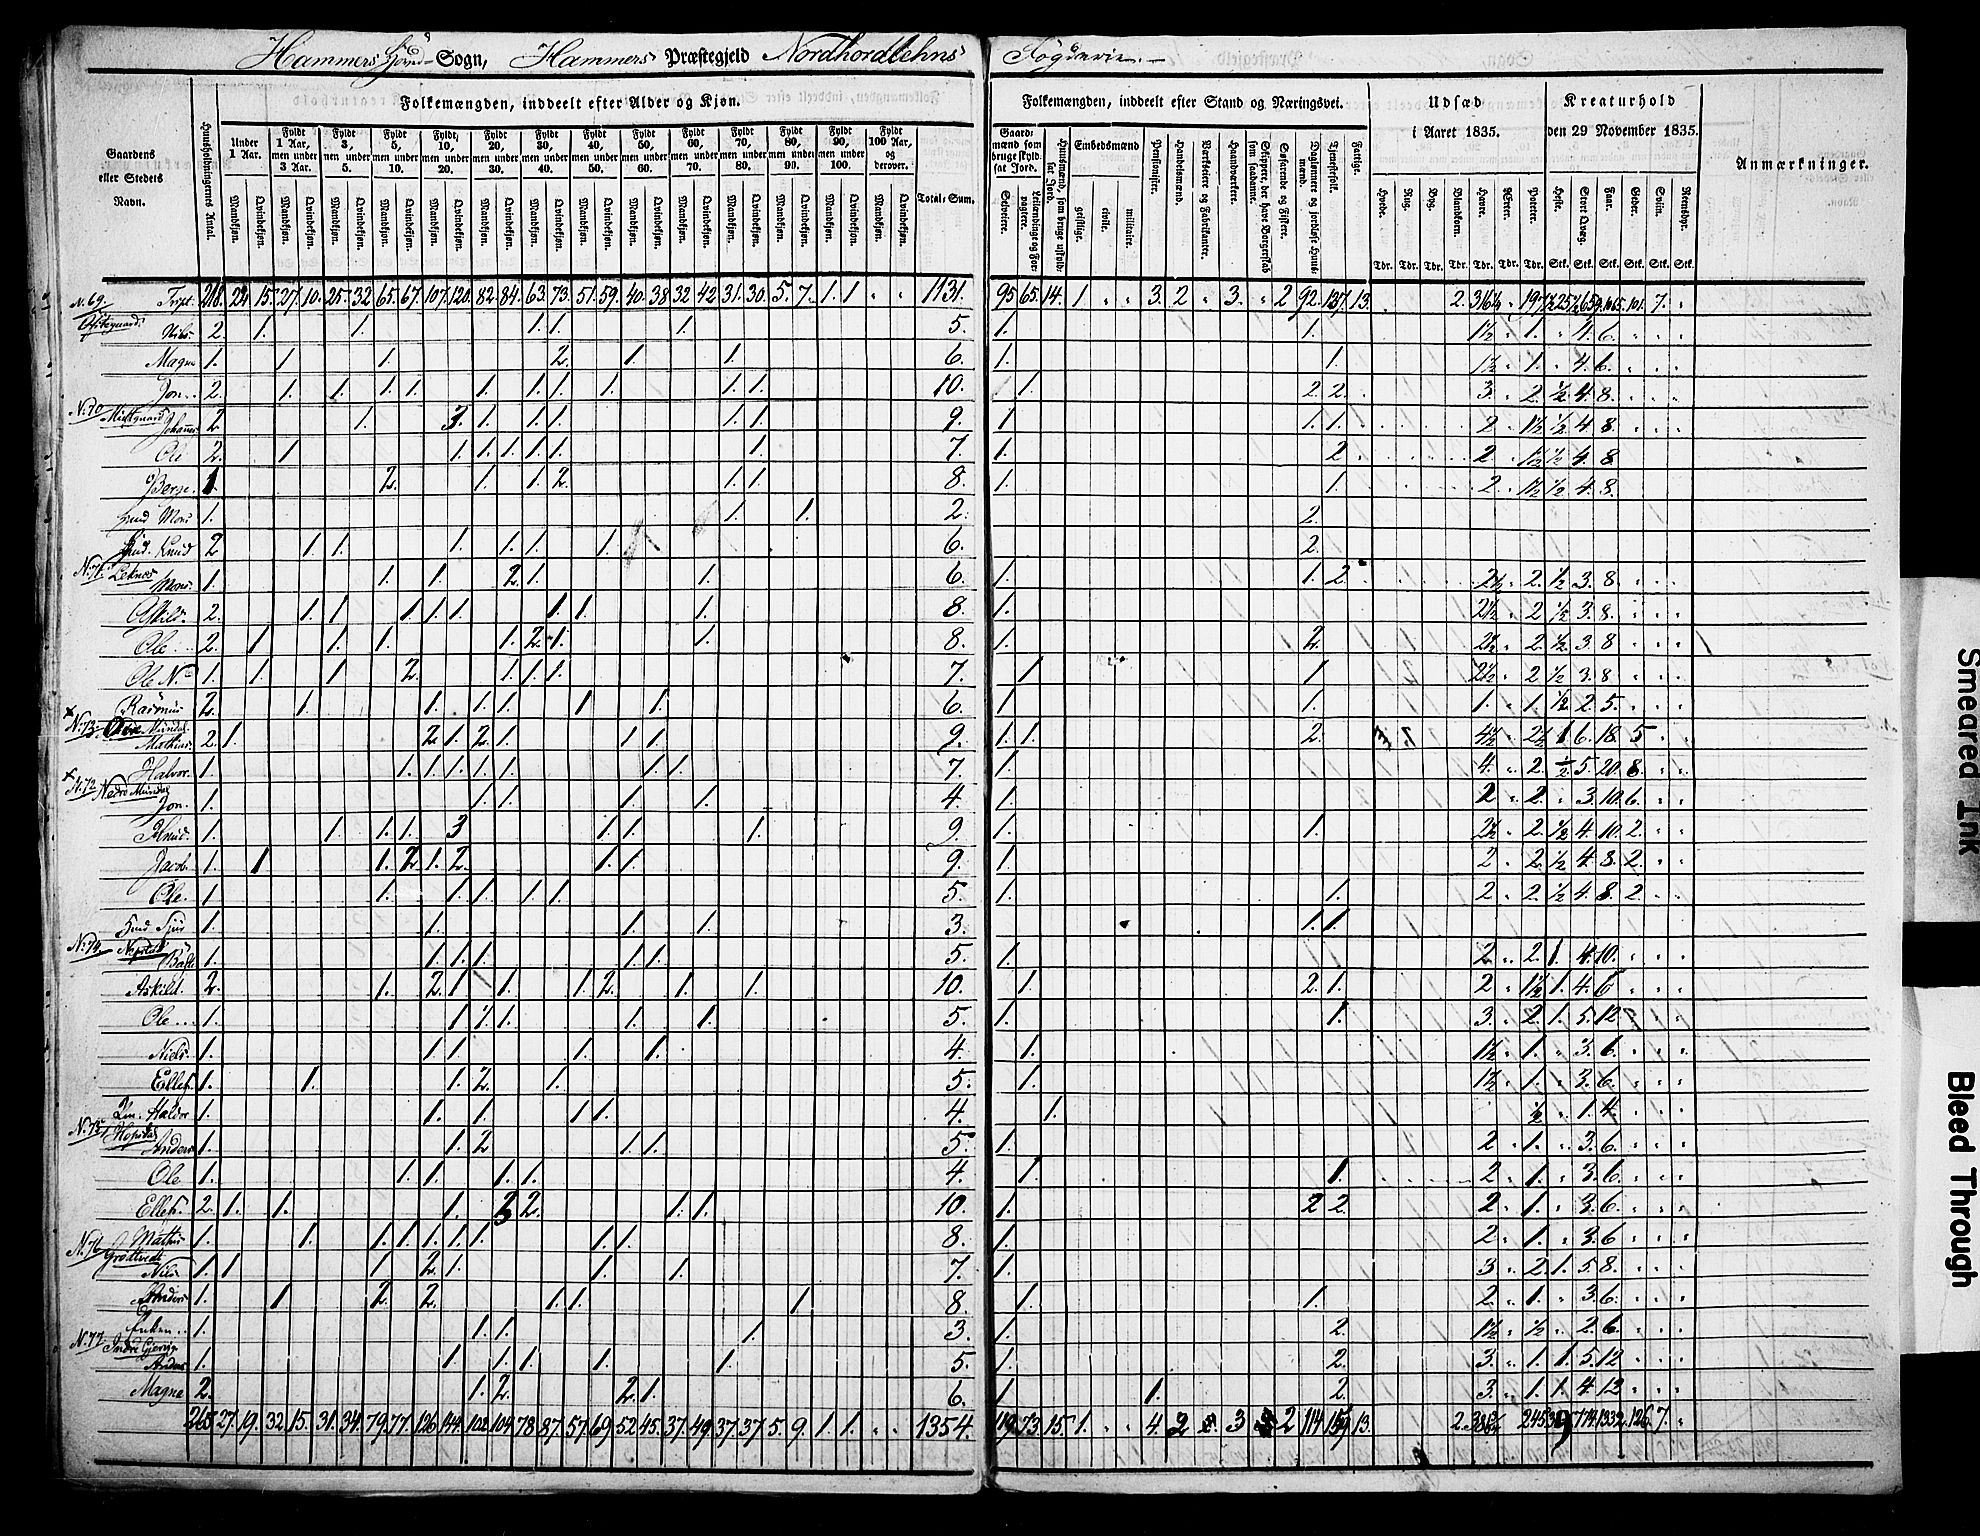 Hammers Hoved-Sogn, Hammers Præstegjeld Nordhordlehns Fögderie.
Gaardens eller Stedets Navn.
Huusholdningernes Antal.
Folkemængden, inddeelt efter Alder og Kjøn.
Under 1 Aar.
Fyldt 1 Aar, men under 3 Aar.
Fyldt 3, men under 5.
Fyldt 5, men under 10.
Fyldt 10, men under 20.
Fyldt 20, men under 30.
Fyldt 30, men under 40.
Fyldt 40, men under 50.
Fyldt 50, men under 60.
Fyldt 60, men under 70.
Fyldt 70, men under 80.
Fyldt 80, men under 90.
Fyldt 90, men under 100.
Fyldt 100 Aar, og derover.
Mandkjøn. Qvindekjøn.
Total-Sum.
Folkemængden, inddeelt efter Stand og Næringsvei.
Gaardmænd som bruge skyldsat Jord.
Selveiere.
Leilændinge og Forpagtere.
Huusmænd, som bruge uskyldsat Jord.
Embedsmænd
geistlige. civile. militaire.
Pensionister.
Handelsmænd.
Værkseiere og Fabrikanter.
Haandværkere.
Skippere, der have Borgerskab som saadanne.
Søfarende og Fiskere.
Daglønnere og jordløse Huusmænd.
Tjenestefolk.
Fattige.
Udsæd i Aaret 1835.
Hvede. Rug. Byg. Blandkorn. Havre. Erter. Poteter.
Tdr. Tdr. Tdr. Tdr. Tdr. Tdr. Tdr.
Kreaturhold den 29 November 1835.
Heste. Stort Qvæg. Faar. Geder. Sviin. Rensdyr.
Stk. Stk. Stk. Stk. Stk. Stk.
Anmærkninger.
N. 69. 218. 24. 15. 27. 10. 25. 32. 65. 67. 107. 120. 82. 84. 63. 73. 51. 59. 40. 38. 32. 42. 31. 30. 5. 7. 1. 1 " " 1131. 95. 65. 14. 1 " " 3. 2 " 3. " 2 92. 137. 13.
Nils. 2. 1. 1. 1. 1. 1. 5. 1. 1. 1½ " 1. " 4. 6.
Magne 1. 1 1. 2. 1. 1. 6. 1. 1. 1½ " 1. " 4. 6.
Jon 2. 1. 1. 1. 1. 1. 1. 1. 1. 1. 1. 10. 1. 2 2. 3. " 2. ½ 4. 8.
N. 70 Midtgaard
Johannes 2 1. 3. 1. 1. 1. 1. 1. 9. 1 1. 1. 2 " 1½ ½ 4. 8.
Ole 2. 1 1. 1. 1. 1. 1. 1. 7. 1. 2 2 " 1½ ½ 4. 8
Berge 1. 2. 1. 1. 2. 1. 1. 8. 1. 1. 2. " 1½ ½ 4. 8.
Huus Mons 1. 1. 1. 2. 2.
Knud 2 1. 1. 1. 1. 1. 1. 6. 2.
N. 71. Leknes
Mons 1. 1. 1. 2. 1. 1. 6. 1. 1. 2. 2½ " 2. ½ 3. 8.
2. 1. 1 1. 1. 1. 1. 1. 1. 8. 1. 2½ " 2 ½ 3. 8.
Ole 2. 1 1. 1. 1. 2. 1. 1. 8. 1. 2. 2½ " 2. ½ 3. 8
Ole N. 1. 1. 1. 2. 1. 1. 1. 7. 1 1 2½ " 2 ½ 3. 8
Rasmus 2. 1. 1. 1. 1. 1. 1. 6. 1. 1. 1. " 1. ½ 2. 5.
N. 73. Mundal
Mathias 2. 1. 2. 1. 2. 1. 1. 1. 9. 1. 1. 2. 4½ " 2½ 1 6. 18. 5
Halvor. 1. 1. 1. 1. 1. 1. 1. 1. 7. 1 4. " 2. ½ 5. 20. 8.
N. 72 Nedre Mundal
Jon. 1. 1. 1. 1. 1. 4. 1. 2 " 2. " 3. 10. 6.
Knud. 1. 1. 1. 1. 3 1. 1. 1. 9. 1. 1. 2½ " 2. ½ 4. 10. 2.
Jacob 1. 1 1. 2. 1. 2. 1. 1. 9. 1. 2 " 2. ½ 4. 8. 2.
Ole. 1. 1. 1. 1. 1. 1. 5. 1. 1. 2 " 2. ½ 4. 8. 2.
1. 1. 1. 1. 3. 1. 1.
N. 74. 1. 1. 1. 1. 1. 1. 5. 1. 2. " 2. 1. 4. 10.
Askild. 2. 1. 2. 1. 1. 1. 2. 1. 1. 10. 1. 2. 1. 2 " 1½ 1. 4. 6
Ole 1. 1 1. 1. 1. 1. 5. 1. 1. 3. " 2. 1. 5. 12.
Niels 1. 1. 1. 1. 1. 4. 1. 1½ " 1. " 3. 6.
Ellef. 1. 1. 1. 2. 1. 5. 1. 1½ " 1. " 3. 6.
Haldor 1. 1. 1. 1. 1. 4. 1. ½ " 1. 4.
N. 75
Anders 1. 1. 2 1. 1. 5. 1. 2 " 1. " 3. 6.
Ole 1. 1. 1. 1. 1. 4. 1. 1. 2 " 1. " 3. 6.
Ellef 2. 1. 1. 1. 3 2. 1. 1. 10. 1. 2 2. 2. " 1. " 3. 6.
Mathis 1. 1. 1. 1. 1. 1. 1. 1. 1. 8. 1. 2. " 1. " 3. 6
N. 76
Nils 1. 1 1. 2. 1. 1. 1. 7. 1. 3 " 2. 1. 5. 8.
Anders 1. 1 2. 2. 1. 1. 1. 8. 1. 1. 2. " 1. " 3. 6.
Enken 1. 1. 1. 1. 3. 1. 2. 1½ " ½ " 2. 6.
N. 77. Indre
Anders 1. 1. 1. 1. 1. 1. 5. 1. 2. 3. " 1. 1. 5. 12
Magne 2. 1. 2. 2. 1. 6. 1 1. 2. 3. " 1. 1. 4. 12
265. 27. 19. 32. 15. 31. 34. 79. 77. 126. 149. 102. 104. 78. 87. 57. 69. 52. 45. 37. 49. 37. 37. 5. 9. 1. 1. " " 1354. 119. 73. 15. 1. " " 4. 2 3 2 114 13. 2. 126. 7. "
Smeared Ink
Bleed Through